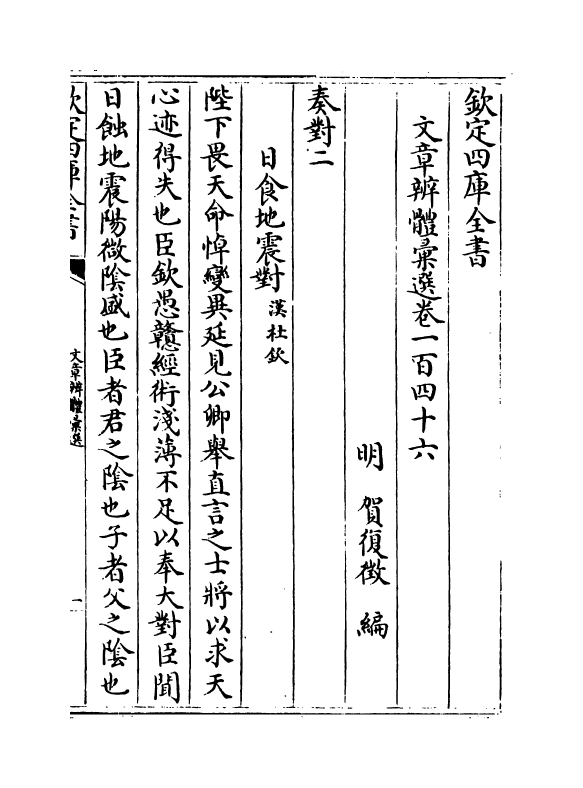 欽定四庫全書
文章辨體彚選卷一百四十六
明 賀復徴 編
奏對二
日食地震對 漢杜欽
陛下畏天命悼變異延見公卿舉直言之士將以求天
心迹得失也臣欽愚戇經術淺薄不足以奉大對臣聞
日蝕地震陽微陰盛也臣者君之陰也子者父之陰也
欽定四庫全書
文章辨體彚選
一